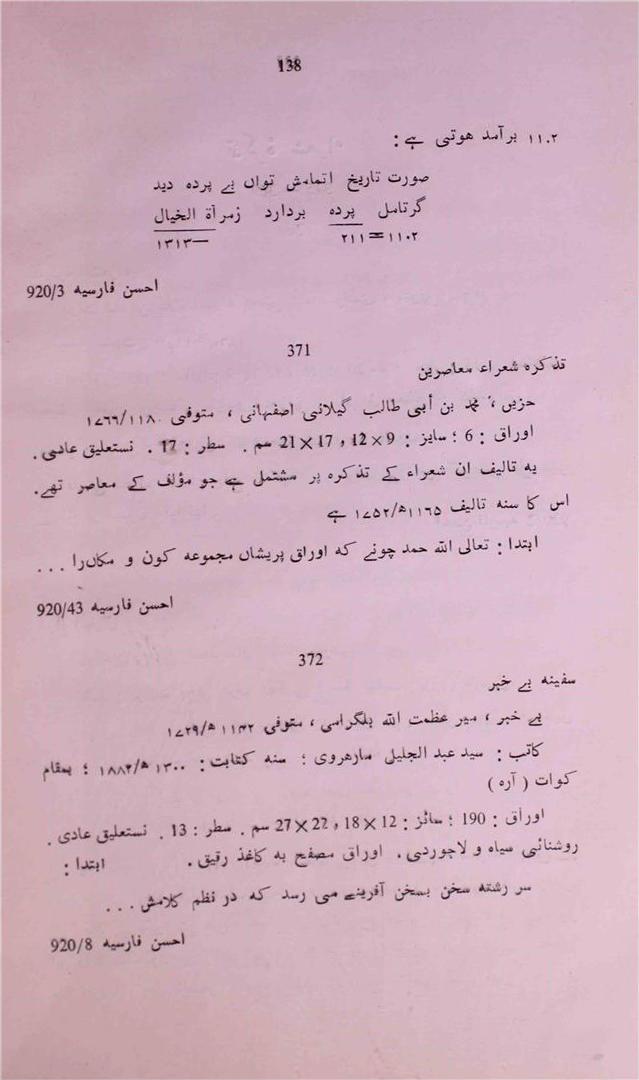 138
۱۱۰۲ برآمد ہوتی ہے :
صورت تاریخ اتمامش تواں بے پردہ دید
گرتامل پردہ بردارد زمرآة الخیال
۱۱۰۲=۲۱۱ —۱۳۱۳
احسن فارسیہ 920/3
371
تذکرہ شعراء معاصرین
حزیں، محمد بن أبی طالب گیلانی اصفہانی ، متوفی ۱۱۸۰/۱۷۶۶
اوراق : 6 ؛ سایز : 9×12 , 17×21 سم . سطر : 17 . نستعلیق عادی .
یہ تالیف ان شعراء کے تذکرہ پر مشتمل ہے جو مؤلف کے معاصر تھے۔
اس کا سنہ تالیف ۱۱۶۵ھ/۱۷۵۲ ہے
ابتدا : تعالی اللہ حمد چونے کہ اوراق پریشاں مجموعہ کون و مکاں‌را ...
احسن فارسیہ 920/43
372
سفینہ بے خبر
بے خبر ، میر عظمت اللہ بلگرامی ، متوفی ۱۱۴۲ھ/۱۷۲۹
کاتب : سید عبد الجلیلی مارہروی ؛ سنہ کتابت : ۱۳۰۰ھ/۱۸۸۲ ؛ بمقام
کوات ( آرہ )
اوراق : 190 ؛ سائز : 12×18 , 22×27 سم . سطر : 13 . نستعلیق عادی .
روشنائی سیاہ و لاجوردی . اوراق مصفح بہ کاغذ رقیق . ابتدا :
سر رشتہ سخن بسخن آفرینے می رسد کہ در نظم کلامش ...
احسن فارسیہ 920/8